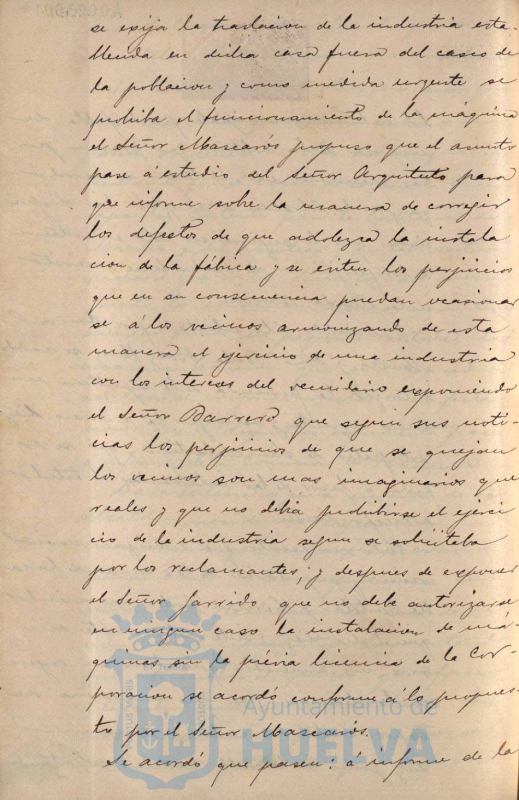 se exija la traslacion de la industria esta-
blecida en dicha casa fuera del casco de
la poblacion y como medida urgente se
prohiba el funcionamiento de la máquina
el Señor Mascarós propuso que el asunto
pase á estudio del Señor Arquitecto para
que informe sobre la manera de corregir
los defectos de que adolezca la instala
cion de la fábrica y se eviten los perjuicios
que en su consecuencia puedan ocasionar
se á los vecinos armonizando de esta
manera el ejercicio de una industria
con los intereses del vecindario exponiendo
el Señor Barrero que segun sus noti-
cias los perjuicios de que se quejan
los vecinos son mas imaginarios que
reales y que no debia prohibirse el ejerci
cio de la industria segun se solicitaba
por los reclamantes; y despues de exponer
el Señor Garrido que no debe autorizarse
en ningun caso la instalacion de má-
quinas sin la prévia licencia de la Cor-
poracion se acordó conforme á lo propues-
to por el Señor Mascarós.
Se acordó que pasen: á informe de la
Ayuntamiento de
HUELVA